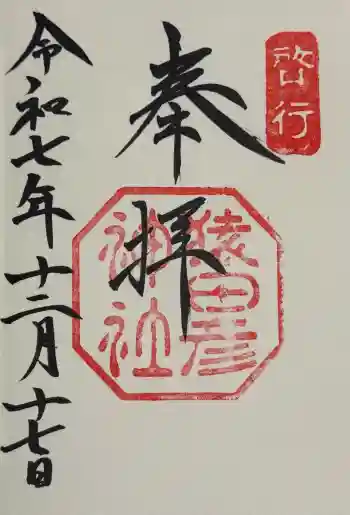 啓行
奉拝
猿田彦
神社
令和七年十二月十七日